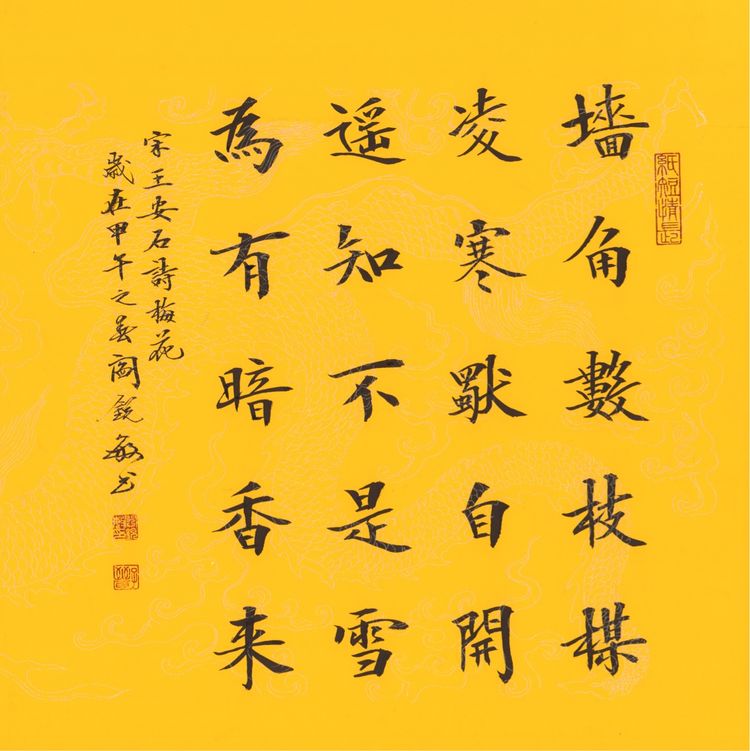 紙短情長
墻角數枝楳
凌寒獨自開
遥知不是雪
為有暗香来
宋王安石詩梅花
歲在甲午之春閻鋭敏书